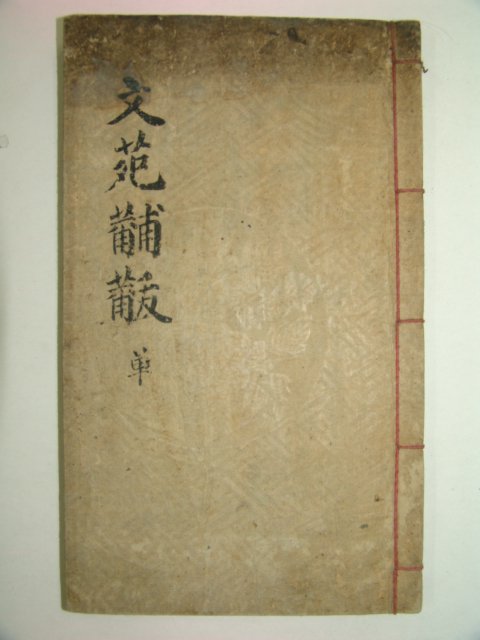 文苑黼黻
單